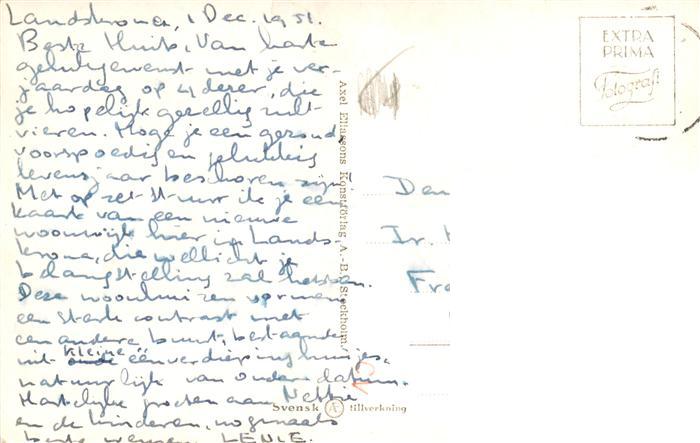 Landskrona, 1 Dec. 1951.
Beste Huib, Van harte
gelukgewenst met je ver-
jaardag op 4 dezer, die
je hopelijk gezellig zult
vieren. Moge je een gezond
voorspoedig en gelukkig
levensjaar beschoren zijn.
Met opzet stuur ik je een
kaart van een nieuwe
woonwijk hier in Lands-
krona, die wellicht je
belangstelling zal hebben.
Deze woonhuizen vormen
een sterk contrast met
een andere buurt, bestaande
uit kleine éénverdiepinghuisjes,
natuurlijk van oudere datum.
Hartelijke groeten aan Nettie
en de kinderen, nogmaals
beste wensen, LENIE.
Axel Eliassons Konstförlag A.-B. Stockholm.
Svensk AE tillverkning
EXTRA
PRIMA
Fotografi
Den
Ir.
Fra